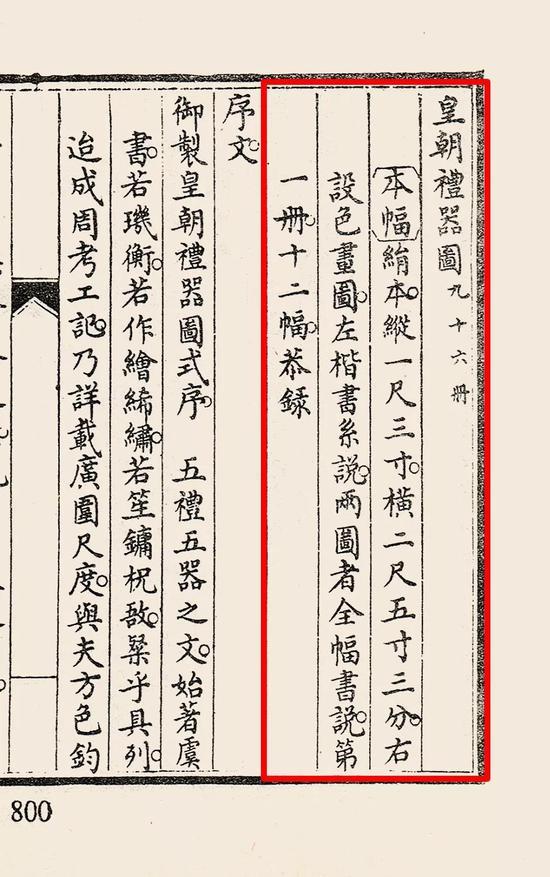 皇朝禮器圖九十六冊
本幅絹本縱一尺三寸橫二尺五寸三分右
設色畫圖左楷書系說兩圖者全幅書說第
一冊十二幅恭錄
序文
御製皇朝禮器圖式序 五禮五器之文始著虞
書若璣衡若作繪絺繡若笙鏞柷敔粲乎具列
迨成周考工記乃詳載廣圍尺度與夫方色鈞
800